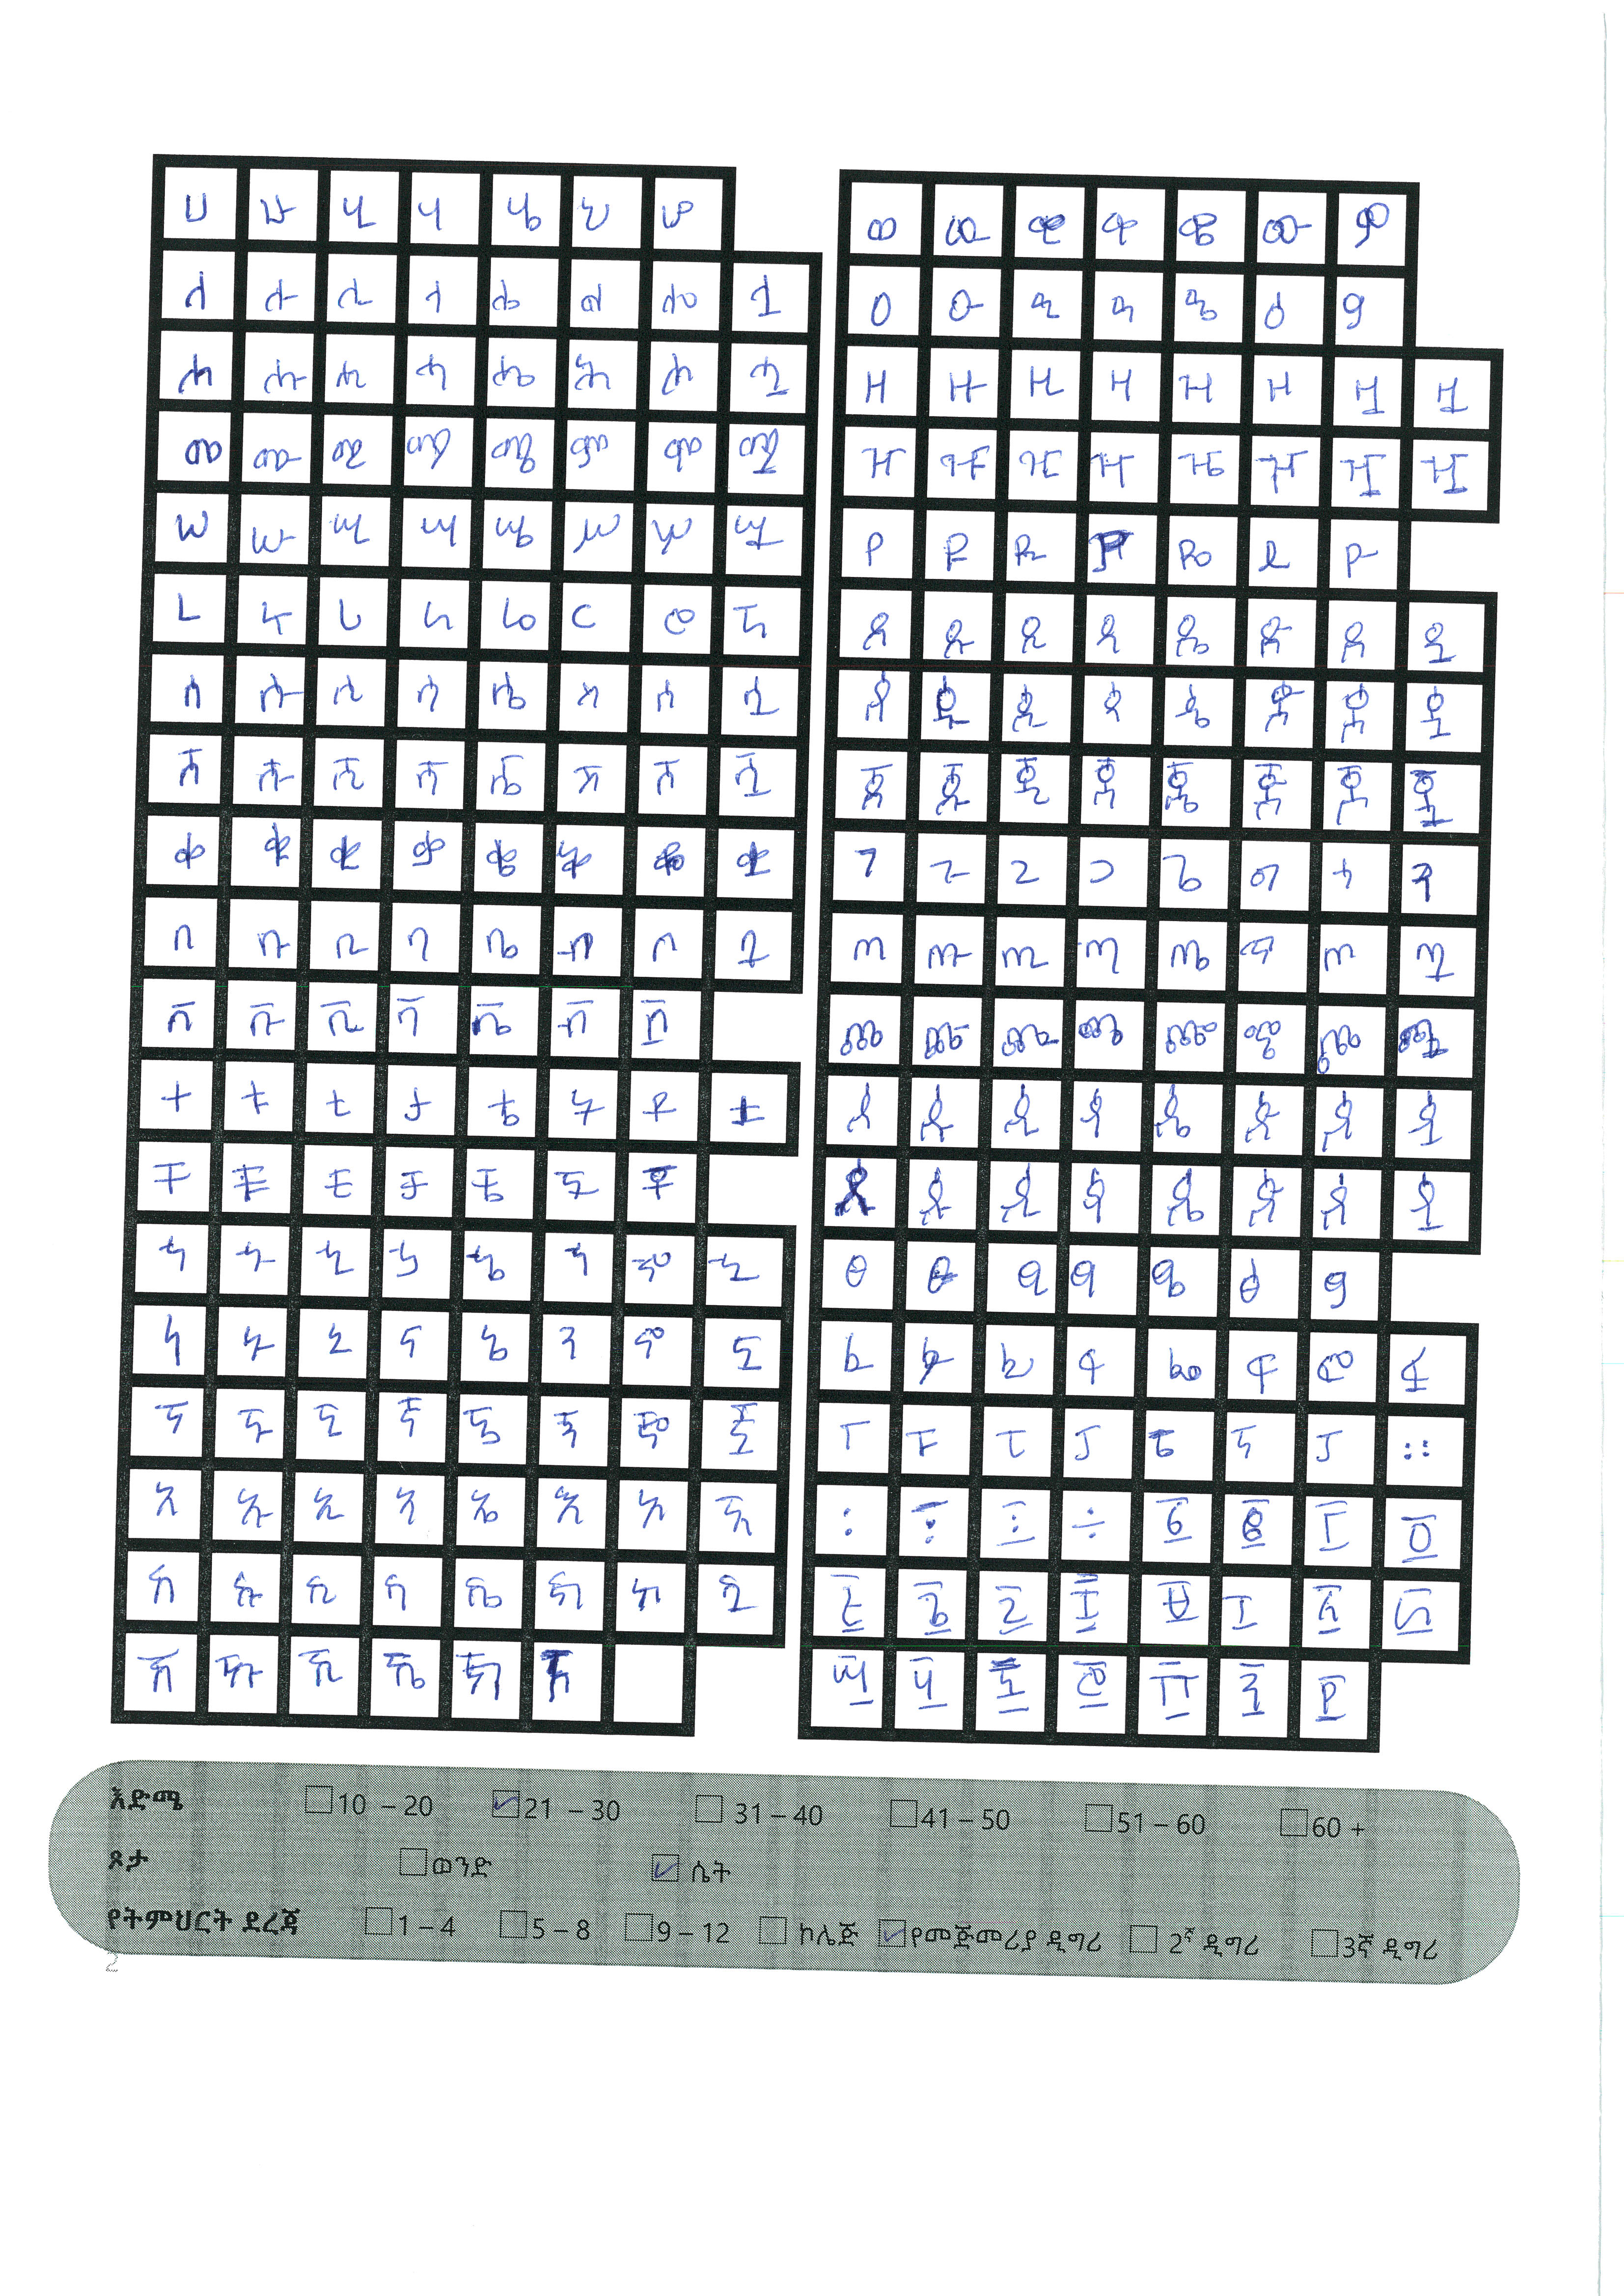 ሀ ሁ ሂ ሃ ሄ ህ ሆ
ለ ሉ ሊ ላ ሌ ል ሎ ሏ
ሐ ሑ ሒ ሓ ሔ ሕ ሖ ሗ
መ ሙ ሚ ማ ሜ ም ሞ ሟ
ሠ ሡ ሢ ሣ ሤ ሥ ሦ ሧ
ረ ሩ ሪ ራ ሬ ር ሮ ሯ
ሰ ሱ ሲ ሳ ሴ ስ ሶ ሷ
ሸ ሹ ሺ ሻ ሼ ሽ ሾ ሿ
ቀ ቁ ቂ ቃ ቄ ቅ ቆ ቋ
በ ቡ ቢ ባ ቤ ብ ቦ ቧ
ቨ ቩ ቪ ቫ ቬ ቭ ቯ
ተ ቱ ቲ ታ ቴ ት ቶ ቷ
ቸ ቹ ቺ ቻ ቼ ች ቾ
ኀ ኁ ኂ ኃ ኄ ኅ ኆ ኋ
ነ ኑ ኒ ና ኔ ን ኖ ኗ
ኘ ኙ ኚ ኛ ኜ ኝ ኞ ኟ
አ ኡ ኢ ኣ ኤ እ ኦ ኧ
ከ ኩ ኪ ካ ኬ ክ ኮ ኳ
ኸ ኹ ኺ ኼ ኽ ኾ
ወ ዉ ዊ ዋ ዌ ው ዎ
ዐ ዑ ዒ ዓ ዔ ዕ ዖ
ዘ ዙ ዚ ዛ ዜ ዝ ዟ ዟ
ዠ ዡ ዢ ዣ ዤ ዥ ዧ ዧ
የ ዩ ዪ ያ ዬ ይ ዮ
ደ ዱ ዲ ዳ ዴ ድ ዶ ዷ
ጰ ጱ ጲ ጳ ጴ ጵ ጶ ጷ
ጀ ጁ ጂ ጃ ጄ ጅ ጆ ጇ
ገ ጉ ጊ ጋ ጌ ግ ጎ ጓ
ጠ ጡ ጢ ጣ ጤ ጥ ጦ ጧ
ጨ ጩ ጪ ጫ ጬ ጭ ጮ ጯ
ጸ ጹ ጺ ጻ ጼ ጽ ጾ ጿ
ጸ ጹ ጺ ጻ ጼ ጽ ጾ ጿ
ፀ ፁ ፂ ፃ ፄ ፅ ፆ
ፈ ፉ ፊ ፋ ፌ ፍ ፎ ፏ
ፐ ፑ ፒ ፓ ፔ ፕ ፖ ።
፡ ፤ ፩ ፪ ፫ ፬
እድሜ 10 – 20 21 – 30 31 – 40 41 – 50 51 – 60 60 +
ጾታ ወንድ ሴት
የትምህርት ደረጃ 1 – 4 5 – 8 9 – 12 ኮሌጅ የመጀመሪያ ዲግሪ 2ኛ ዲግሪ 3ኛ ዲግሪ
2